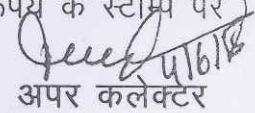 के स्टाम्प पर
4/6/18
अपर कलेक्टर